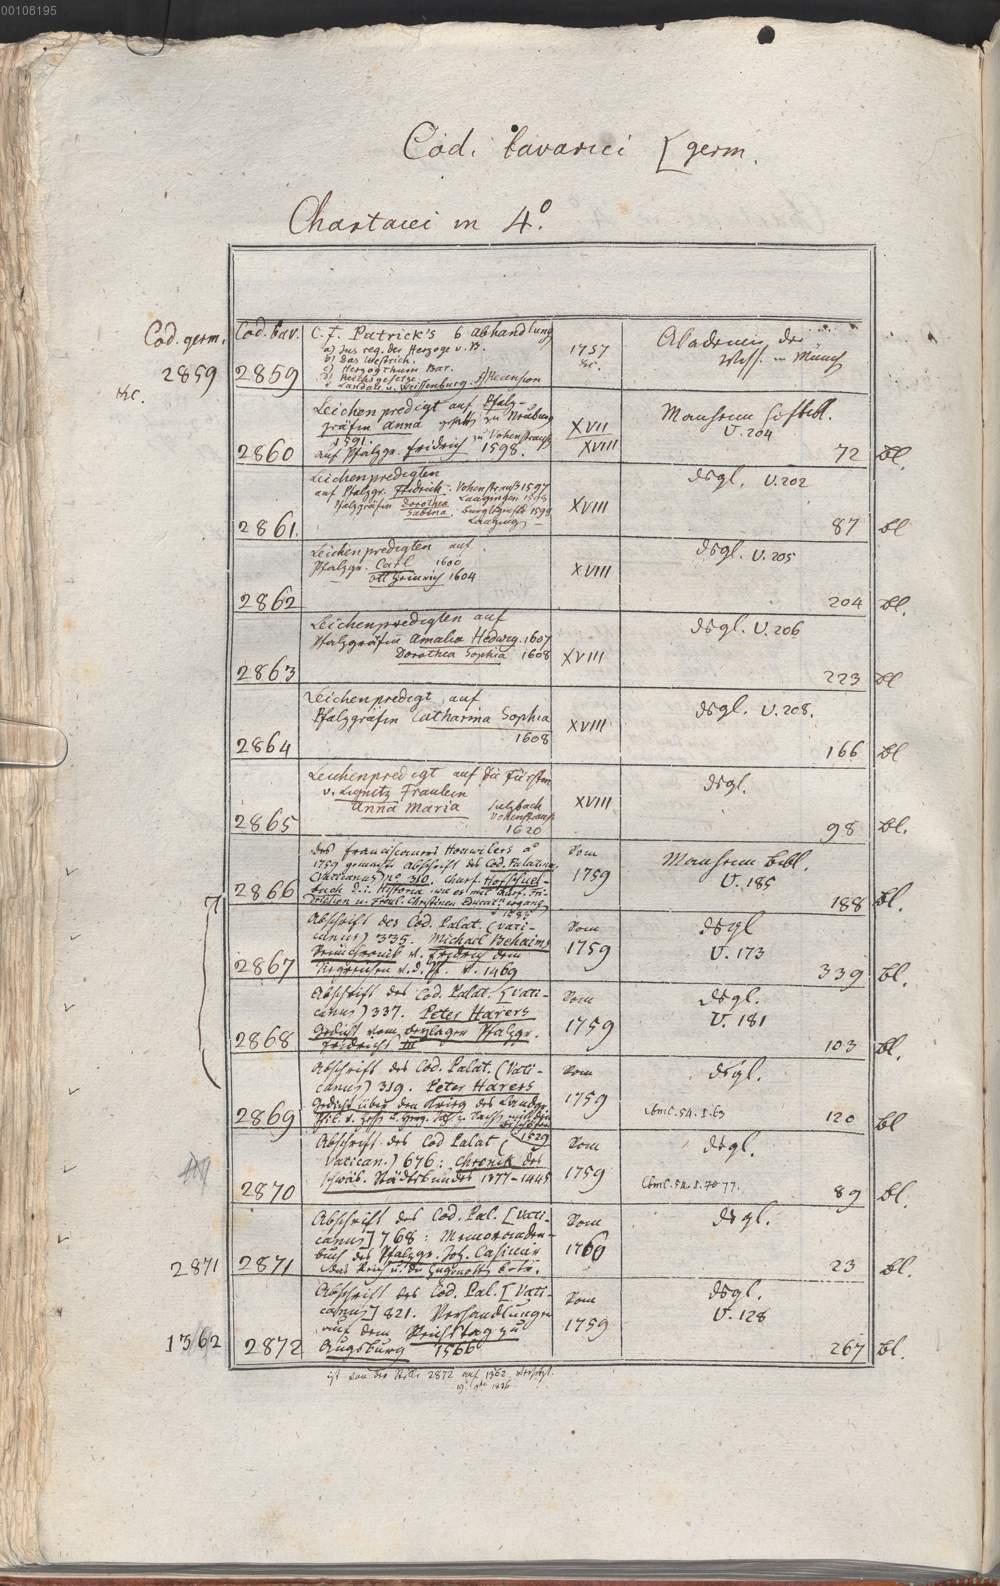 00108195
Cod. bavarici [germ.
Chartacei in 4.º
Cod. germ.
2859
etc.
Cod. bav.
2859
C. F. Patrick's 6 Abhandlung
a) Jus reg. der Herzoge v. B.
b) das Westrich.
c) Herzogthum Bar.
d) Reichsgesetze
e) Landau u. Weissenburg. f) Recension
1757
etc.
Academie der
Wiss. in Münch
2860
Leichenpredigt auf Pfalz-
gräfin Anna zu Neuburg
1591.
auf Pfalzgr. Fridrich zu Vohenstrauß 1598.
XVII
XVIII
Manheim Hofbibl.
U. 204
72 Bl.
2861.
Leichenpredigten
auf Pfalzgr. Fridrich. Vohenstrauß 1597
Pfalzgräfin Dorothea Laugingen 1598
Sabina. 1598
Lauging –
XVIII
dsgl. U. 202
87 Bl
2862
Leichenpredigten auf
Pfalzgr. Carl 1600
Ott Heinrich 1604
XVIII
dsgl. U. 205
204 Bl.
2863
Leichenpredigten auf
Pfalzgräfin Amalia Hedwig. 1607
Dorothea Sophia 1608
XVIII
dsgl. U. 206
223 Bl
2864
Leichenpredigt auf
Pfalzgräfin Catharina Sophia
1608
XVIII
dsgl. U. 208.
166 Bl
2865
Leichenpredigt auf die Fürstin
v. Lignitz Fraulein
Anna Maria Sulzbach
Vohenstrauß
1620
XVIII
dsgl.
98 Bl.
2866
des Franciscaners Houwilers aº
1759 gemachte Abschrift des Cod. Palatin.
(Vaticanus) nº 310. Churf.
buch d. i. Historia wie es mit Churf. Fri-
drichen u. Freul. Christinen
vom
1759
Manheim Bibl.
U. 185
188 Bl.
2867
Abschrift des Cod. Palat. (Vati-
canus) 335. Michael Behaims
Reimchronik v. Fridrich dem
Siegreichen v. d. Pf. v. 1469
vom
1759
dsgl
U. 173
339 Bl.
2868
Abschrift des Cod. Palat. [Vati-
canus) 337. Peter Harers
Gedicht vom Pfalzgr.
Fridrichs III
vom
1759
dsgl.
U. 181
103 Bl.
2869
Abschrift des Cod. Palat. (Vati-
canus) 319. Peter Harers
Gedicht über den Krieg des Landgr.
1529
vom
1759
dsgl.
Cbmc. 54. I. 63
120 Bl
2870
Abschrift des Cod Palat (
Vatican.) 676: Chronik des
schwäb. Städtebundes 1377–1445
vom
1759
dsgl.
Cbmc. 54. I. 70 77.
89 Bl.
2871
2871
Abschrift des Cod. Pal. [Vati-
canus] 768: Memoranden-
buch des Pfalzgr. Joh. Casimir
das Reich u. die Hugenotten betr.
vom
1760
dsgl.
23 Bl.
1362
2872
Abschrift des Cod. Pal. [Vati-
canus] 821. Verhandlungen
auf dem Reichstag zu
Augsburg 1566
vom
1759
dsgl.
U. 128
267 Bl.
ist von der Stelle 2872 auf 1362 versetzt.